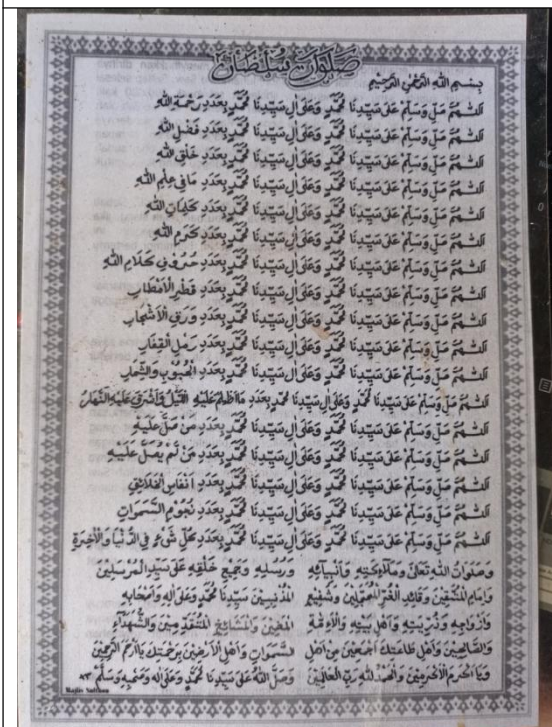 صلوات سلطان
بِسْمِ اللهِ الرَّحْمٰنِ الرَّحِيْمِ
اَللّٰهُمَّ صَلِّ وَسَلِّمْ عَلٰى سَيِّدِنَا مُحَمَّدٍ وَعَلٰى اٰلِ سَيِّدِنَا مُحَمَّدٍ بِعَدَدِ رَحْمَةِ اللهِ
اَللّٰهُمَّ صَلِّ وَسَلِّمْ عَلٰى سَيِّدِنَا مُحَمَّدٍ وَعَلٰى اٰلِ سَيِّدِنَا مُحَمَّدٍ بِعَدَدِ فَضْلِ اللهِ
اَللّٰهُمَّ صَلِّ وَسَلِّمْ عَلٰى سَيِّدِنَا مُحَمَّدٍ وَعَلٰى اٰلِ سَيِّدِنَا مُحَمَّدٍ بِعَدَدِ خَلْقِ اللهِ
اَللّٰهُمَّ صَلِّ وَسَلِّمْ عَلٰى سَيِّدِنَا مُحَمَّدٍ وَعَلٰى اٰلِ سَيِّدِنَا مُحَمَّدٍ بِعَدَدِ مَا فِى عِلْمِ اللهِ
اَللّٰهُمَّ صَلِّ وَسَلِّمْ عَلٰى سَيِّدِنَا مُحَمَّدٍ وَعَلٰى اٰلِ سَيِّدِنَا مُحَمَّدٍ بِعَدَدِ كَلِمَاتِ اللهِ
اَللّٰهُمَّ صَلِّ وَسَلِّمْ عَلٰى سَيِّدِنَا مُحَمَّدٍ وَعَلٰى اٰلِ سَيِّدِنَا مُحَمَّدٍ بِعَدَدِ كَرَمِ اللهِ
اَللّٰهُمَّ صَلِّ وَسَلِّمْ عَلٰى سَيِّدِنَا مُحَمَّدٍ وَعَلٰى اٰلِ سَيِّدِنَا مُحَمَّدٍ بِعَدَدِ حُرُوْفِ كَلَامِ اللهِ
اَللّٰهُمَّ صَلِّ وَسَلِّمْ عَلٰى سَيِّدِنَا مُحَمَّدٍ وَعَلٰى اٰلِ سَيِّدِنَا مُحَمَّدٍ بِعَدَدِ قَطْرِ الْاَمْطَارِ
اَللّٰهُمَّ صَلِّ وَسَلِّمْ عَلٰى سَيِّدِنَا مُحَمَّدٍ وَعَلٰى اٰلِ سَيِّدِنَا مُحَمَّدٍ بِعَدَدِ وَرَقِ الْاَشْجَارِ
اَللّٰهُمَّ صَلِّ وَسَلِّمْ عَلٰى سَيِّدِنَا مُحَمَّدٍ وَعَلٰى اٰلِ سَيِّدِنَا مُحَمَّدٍ بِعَدَدِ رَمْلِ الْقِفَارِ
اَللّٰهُمَّ صَلِّ وَسَلِّمْ عَلٰى سَيِّدِنَا مُحَمَّدٍ وَعَلٰى اٰلِ سَيِّدِنَا مُحَمَّدٍ بِعَدَدِ الْحُبُوْبِ وَالثِّمَارِ
اَللّٰهُمَّ صَلِّ وَسَلِّمْ عَلٰى سَيِّدِنَا مُحَمَّدٍ وَعَلٰى اٰلِ سَيِّدِنَا مُحَمَّدٍ بِعَدَدِ مَا اَظْلَمَ عَلَيْهِ اللَّيْلُ وَاَشْرَقَ عَلَيْهِ النَّهَارُ
اَللّٰهُمَّ صَلِّ وَسَلِّمْ عَلٰى سَيِّدِنَا مُحَمَّدٍ وَعَلٰى اٰلِ سَيِّدِنَا مُحَمَّدٍ بِعَدَدِ مَنْ صَلّٰى عَلَيْهِ
اَللّٰهُمَّ صَلِّ وَسَلِّمْ عَلٰى سَيِّدِنَا مُحَمَّدٍ وَعَلٰى اٰلِ سَيِّدِنَا مُحَمَّدٍ بِعَدَدِ مَنْ لَمْ يُصَلِّ عَلَيْهِ
اَللّٰهُمَّ صَلِّ وَسَلِّمْ عَلٰى سَيِّدِنَا مُحَمَّدٍ وَعَلٰى اٰلِ سَيِّدِنَا مُحَمَّدٍ بِعَدَدِ اَنْفَاسِ الْخَلَائِقِ
اَللّٰهُمَّ صَلِّ وَسَلِّمْ عَلٰى سَيِّدِنَا مُحَمَّدٍ وَعَلٰى اٰلِ سَيِّدِنَا مُحَمَّدٍ بِعَدَدِ نُجُوْمِ السَّمَوَاتِ
اَللّٰهُمَّ صَلِّ وَسَلِّمْ عَلٰى سَيِّدِنَا مُحَمَّدٍ وَعَلٰى اٰلِ سَيِّدِنَا مُحَمَّدٍ بِعَدَدِ كُلِّ شَيْءٍ فِى الدُّنْيَا وَالْاٰخِرَةِ
وَصَلَوَاتُ اللهِ تَعَالٰى وَمَلَآئِكَتِهِ وَاَنْبِيَآئِهِ وَرُسُلِهِ وَجَمِيْعِ خَلْقِهِ عَلٰى سَيِّدِ الْمُرْسَلِيْنَ
وَاِمَامِ الْمُتَّقِيْنَ وَقَائِدِ الْغُرِّ الْمُحَجَّلِيْنَ وَشَفِيْعِ الْمُذْنِبِيْنَ سَيِّدِنَا مُحَمَّدٍ وَعَلٰى اٰلِهِ وَاَصْحَابِهِ
وَاَزْوَاجِهِ وَذُرِّيَّتِهِ وَاَهْلِ بَيْتِهِ وَالْاَئِمَّةِ الْمَاضِيْنَ وَالْمَشَائِخِ الْمُتَقَدِّمِيْنَ وَالشُّهَدَآءِ
وَالصَّالِحِيْنَ وَاَهْلِ طَاعَتِكَ اَجْمَعِيْنَ مِنْ اَهْلِ السَّمَوَاتِ وَاَهْلِ الْاَرَضِيْنَ بِرَحْمَتِكَ يَا اَرْحَمَ الرَّاحِمِيْنَ
وَيَا اَكْرَمَ الْاَكْرَمِيْنَ وَالْحَمْدُ لِلّٰهِ رَبِّ الْعَالَمِيْنَ وَصَلَّى اللهُ عَلٰى سَيِّدِنَا مُحَمَّدٍ وَعَلٰى اٰلِهِ وَصَحْبِهِ وَسَلَّمْ ٨٣
Majlis Sulthan